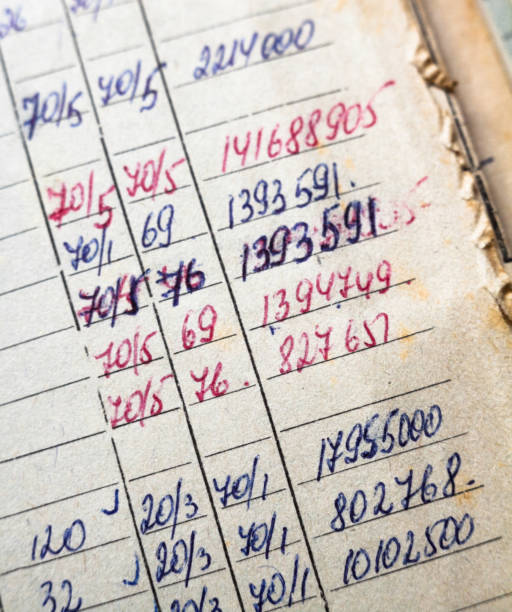 70/5 70/5 2214000
70/5 70/5 141688905
70/1 69 1393591.
70/5 76 1393591
70/5 69 1394749.
70/5 76. 827657
20/3 70/1 17955000
120 20/3 70/1 802768.
32 20/3 70/1 10102500